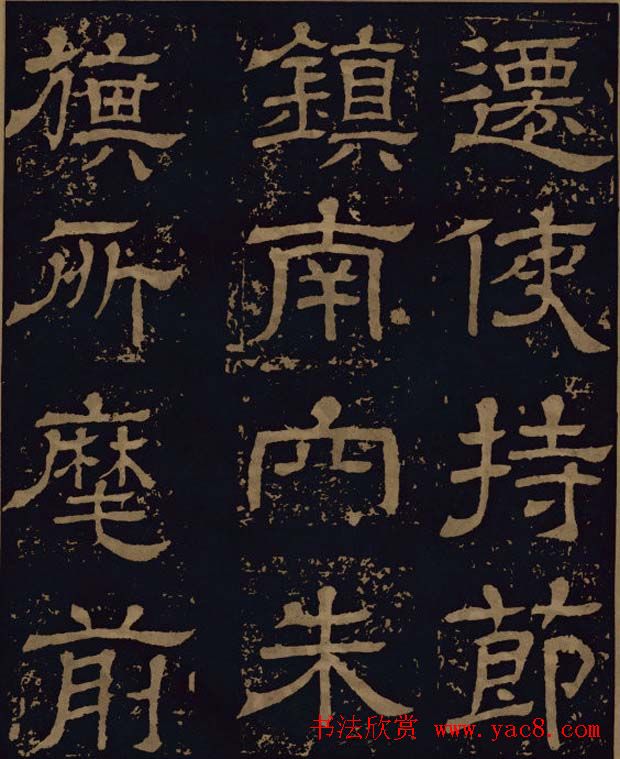 遷使持節
鎮南内朱
旗所麾前
书法欣赏 www.yac8.com